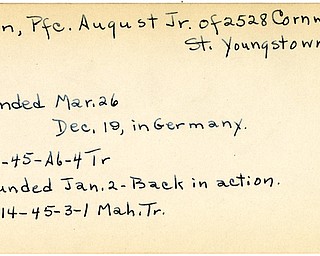 n, Pfc. August Jr. of 2528 Cornw
St. Youngstown
nded Mar. 26
Dec. 19, in Germany.
-45-A6-4 Tr
unded Jan. 2 - Back in action.
14-45-3-1 Mah. Tr.